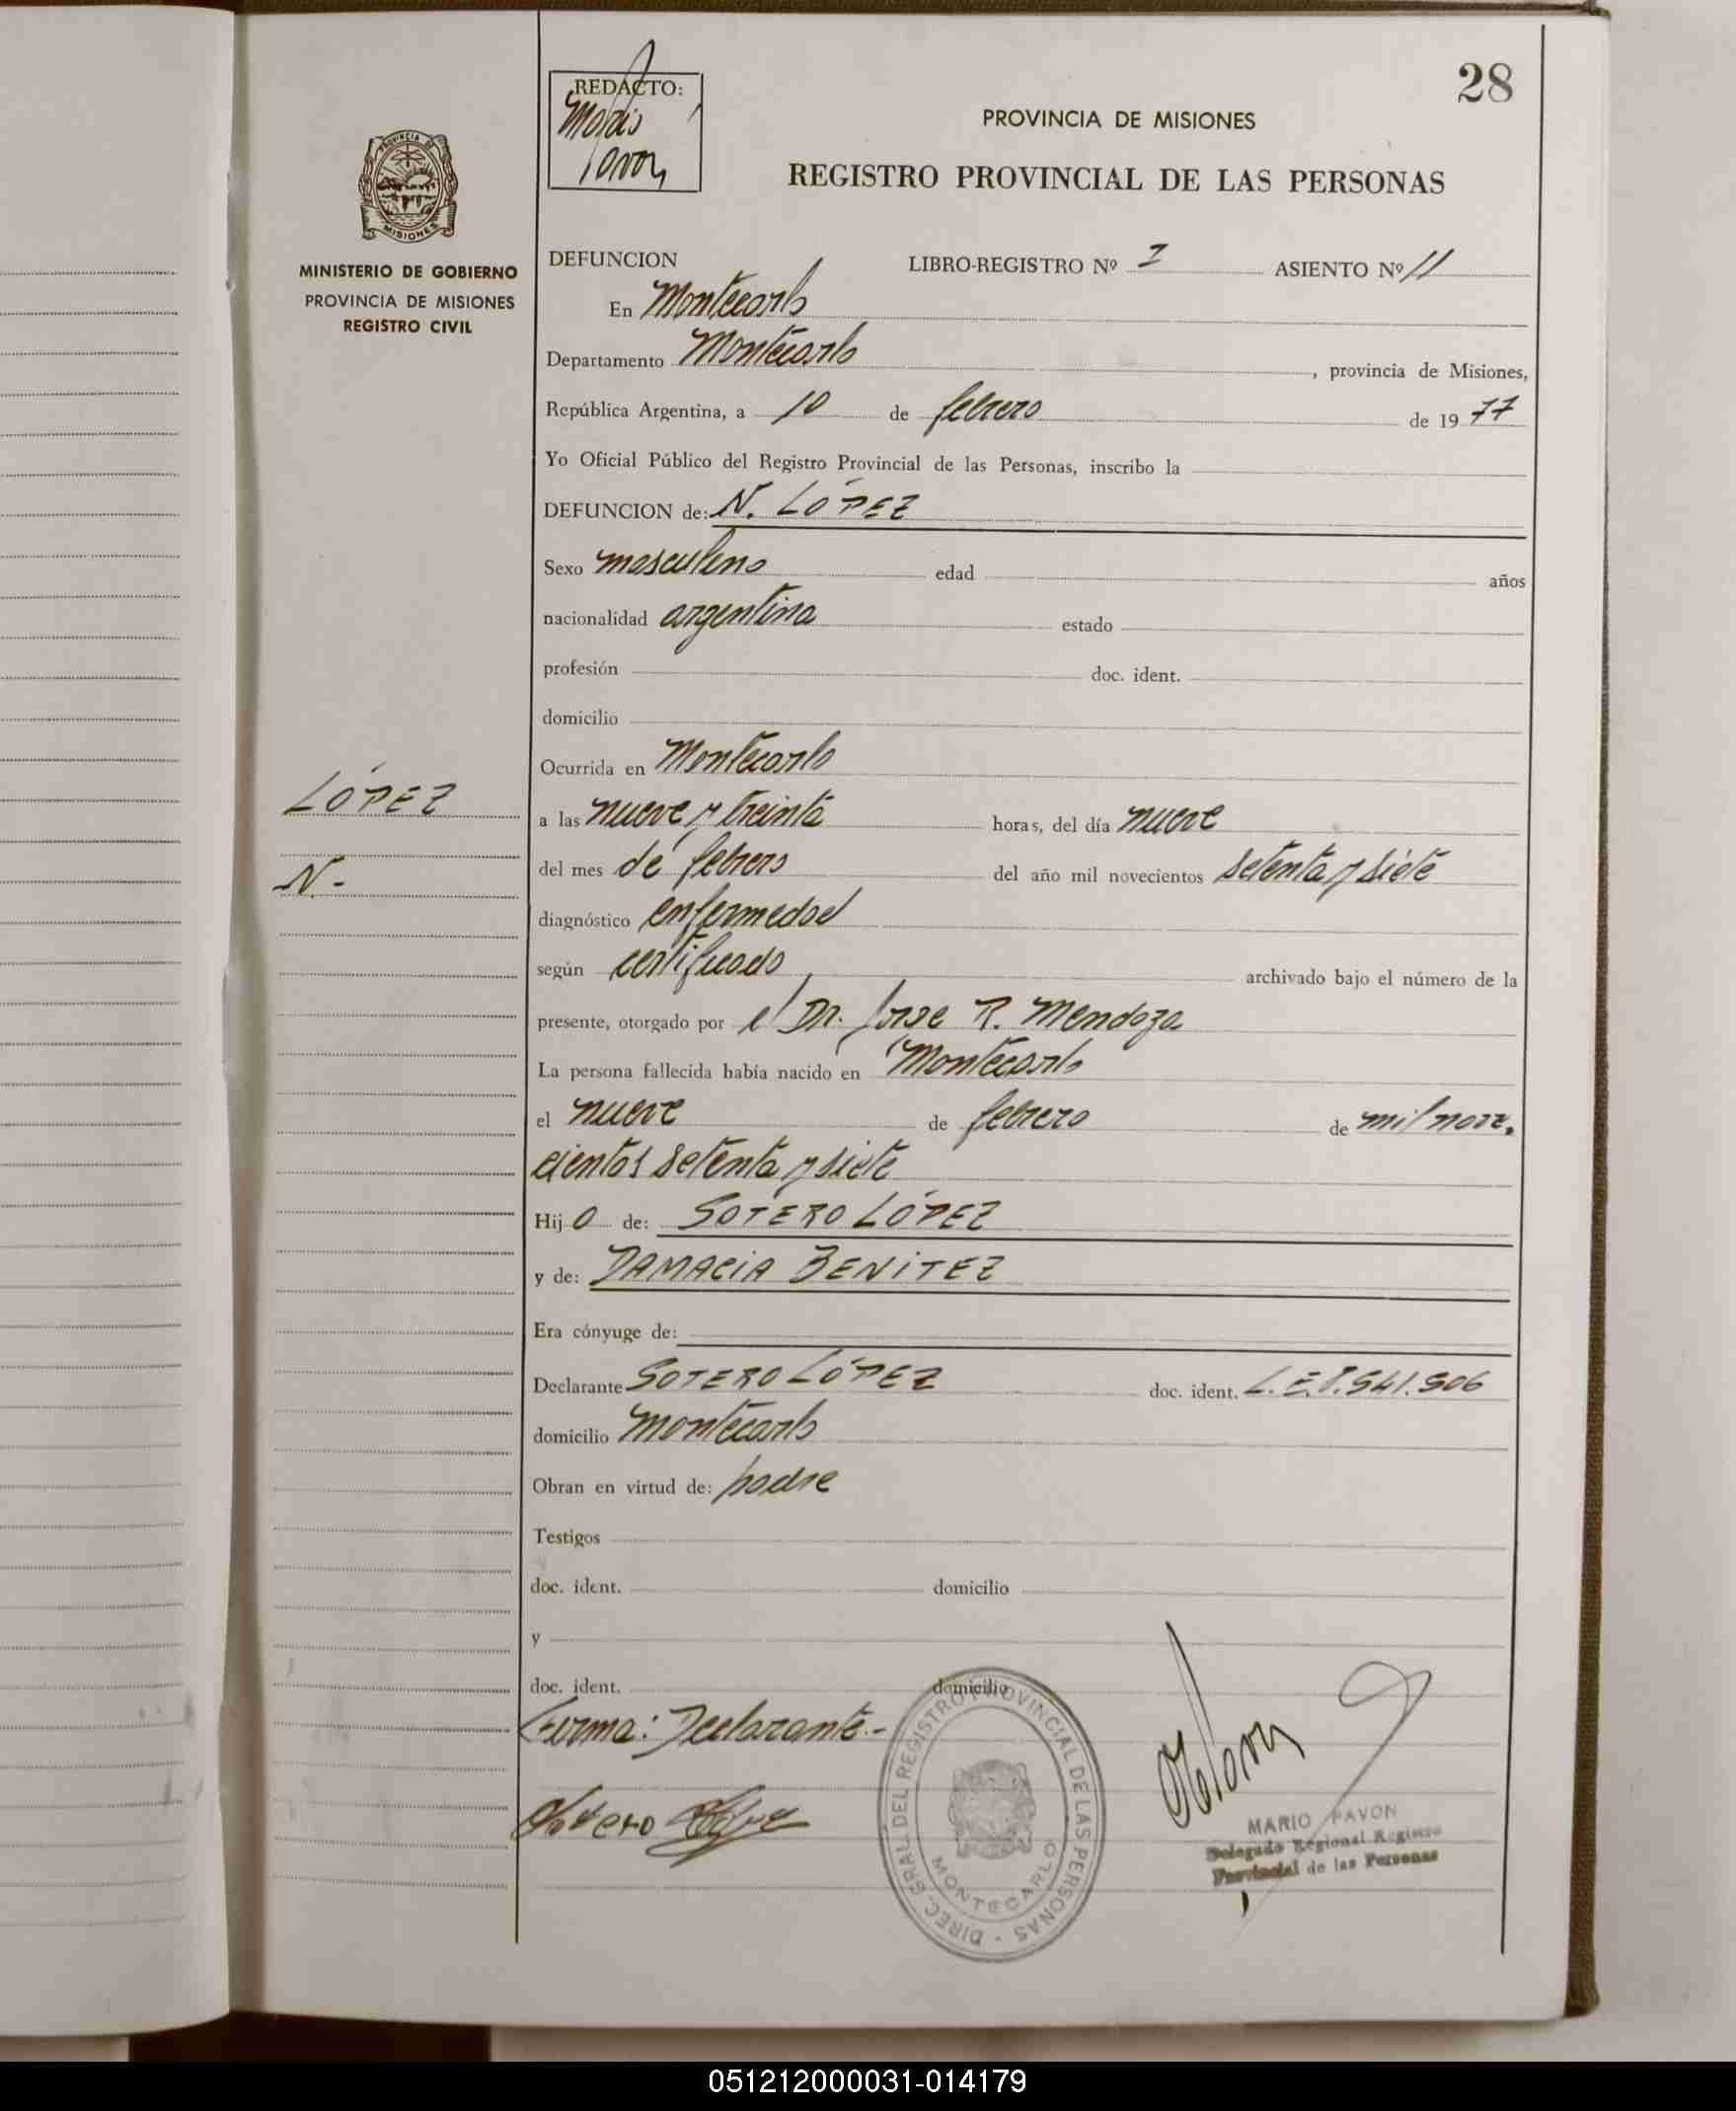 28
REDACTO:
Mario
Pavon
PROVINCIA DE MISIONES
REGISTRO PROVINCIAL DE LAS PERSONAS
PROVINCIA DE
MISIONES
MINISTERIO DE GOBIERNO
PROVINCIA DE MISIONES
REGISTRO CIVIL
LÓPEZ
N.-
DEFUNCION LIBRO-REGISTRO Nº I ASIENTO Nº 11
En Montecarlo
Departamento Montecarlo, provincia de Misiones,
República Argentina, a 10 de febrero de 1977
Yo Oficial Público del Registro Provincial de las Personas, inscribo la
DEFUNCION de: N. LÓPEZ
Sexo masculino edad años
nacionalidad argentina estado
profesión doc. ident.
domicilio
Ocurrida en Montecarlo
a las nueve y treinta horas, del día nueve
del mes de febrero del año mil novecientos setenta y siete
diagnóstico enfermedad
según certificado archivado bajo el número de la
presente, otorgado por el Dr. Jose R. Mendoza
La persona fallecida había nacido en Montecarlo
el nueve de febrero de mil nove.
cientos setenta y siete
Hijo de: SOTERO LÓPEZ
y de: DAMACIA BENITEZ
Era cónyuge de:
Declarante SOTERO LÓPEZ doc. ident. L.E. 7.541.506
domicilio Montecarlo
Obran en virtud de: padre
Testigos
doc. ident. domicilio
y
doc. ident. domicilio
Firma: Declarante.-
Sotero
DIREC. GRAL DEL REGISTRO PROVINCIAL DE LAS PERSONAS -
MONTECARLO
MARIO PAVON
Delegado Regional Registro
Provincial de las Personas
051212000031-014179